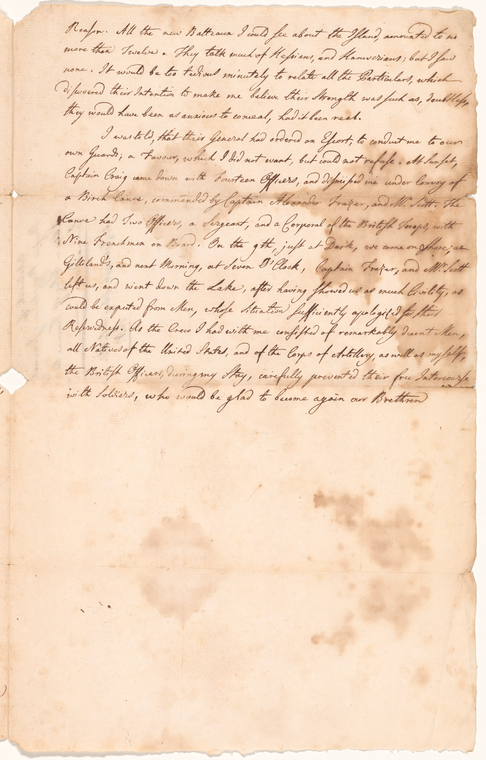 Reason. All the new Batteaux I could see about the Island, amounted to no
more than Twelve. They talk much of Hessians, and Hanoverians; but I saw
none. It would be too tedious minutely to relate all the Particulars, which
discovered their Intention to make me believe their Strength was such as, doubtless,
they would have been as anxious to conceal, had it been real.
I was told, that their General had ordered an Escort, to conduct me to our
own Guards; a Favour, which I did not want, but could not refuse. At Sunset,
Captain Craig came down with Fourteen Officers, and dismissed me under Convoy of
a Birch Canoe, commanded by Captain Alexander Frazer, and Mr. Scott. The
Canoe had Two Officers, a Sergeant, and a Corporal of the British Troops, with
Nine Frenchmen on Board. On the 9th, just at Dark, we came on Shore, at
Gilleland's, and next Morning, at Seven O'Clock, Captain Frazer, and Mr. Scott
left us, and went down the Lake, after having showed us as much Civility, as
could be expected from Men, whose Situation sufficiently apologised for their
Reservedness. As the Crew I had with me consisted of remarkably decent Men,
all Natives of the United States, and of the Corps of Artillery, as well as myself,
the British Officers, during my Stay, carefully prevented their free Intercourse
with Soldiers, who would be glad to become again our Brethren